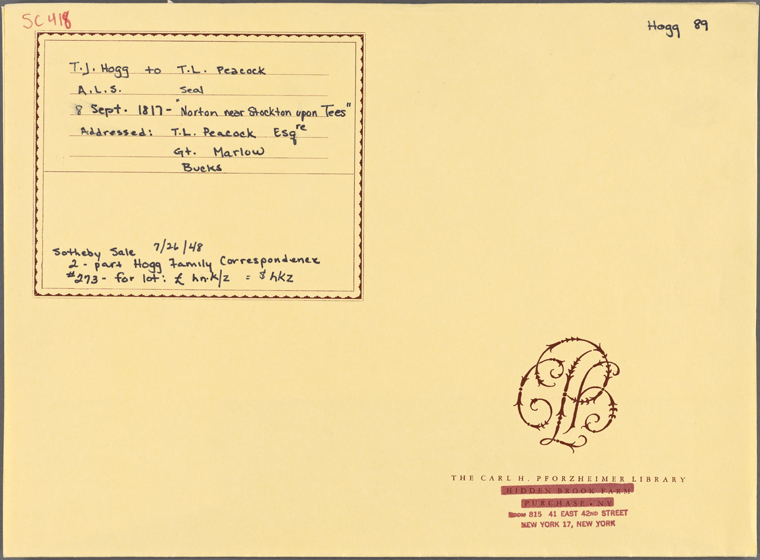 SC 418
Hogg 89
T.J. Hogg to T.L. Peacock
A.L.S. Seal
8 Sept. 1817 - "Norton near Stockton upon Tees"
Addressed: T.L. Peacock Esqre
Gt. Marlow
Bucks
Sotheby Sale 7/26/48
2 - part Hogg Family Correspondence
#273 - for lot: £ hn.k/z = $ hkz
THE CARL H. PFORZHEIMER LIBRARY
HIDDEN BROOK FARM
PURCHASE • N.Y.
ROOM 815 41 EAST 42ND STREET
NEW YORK 17, NEW YORK